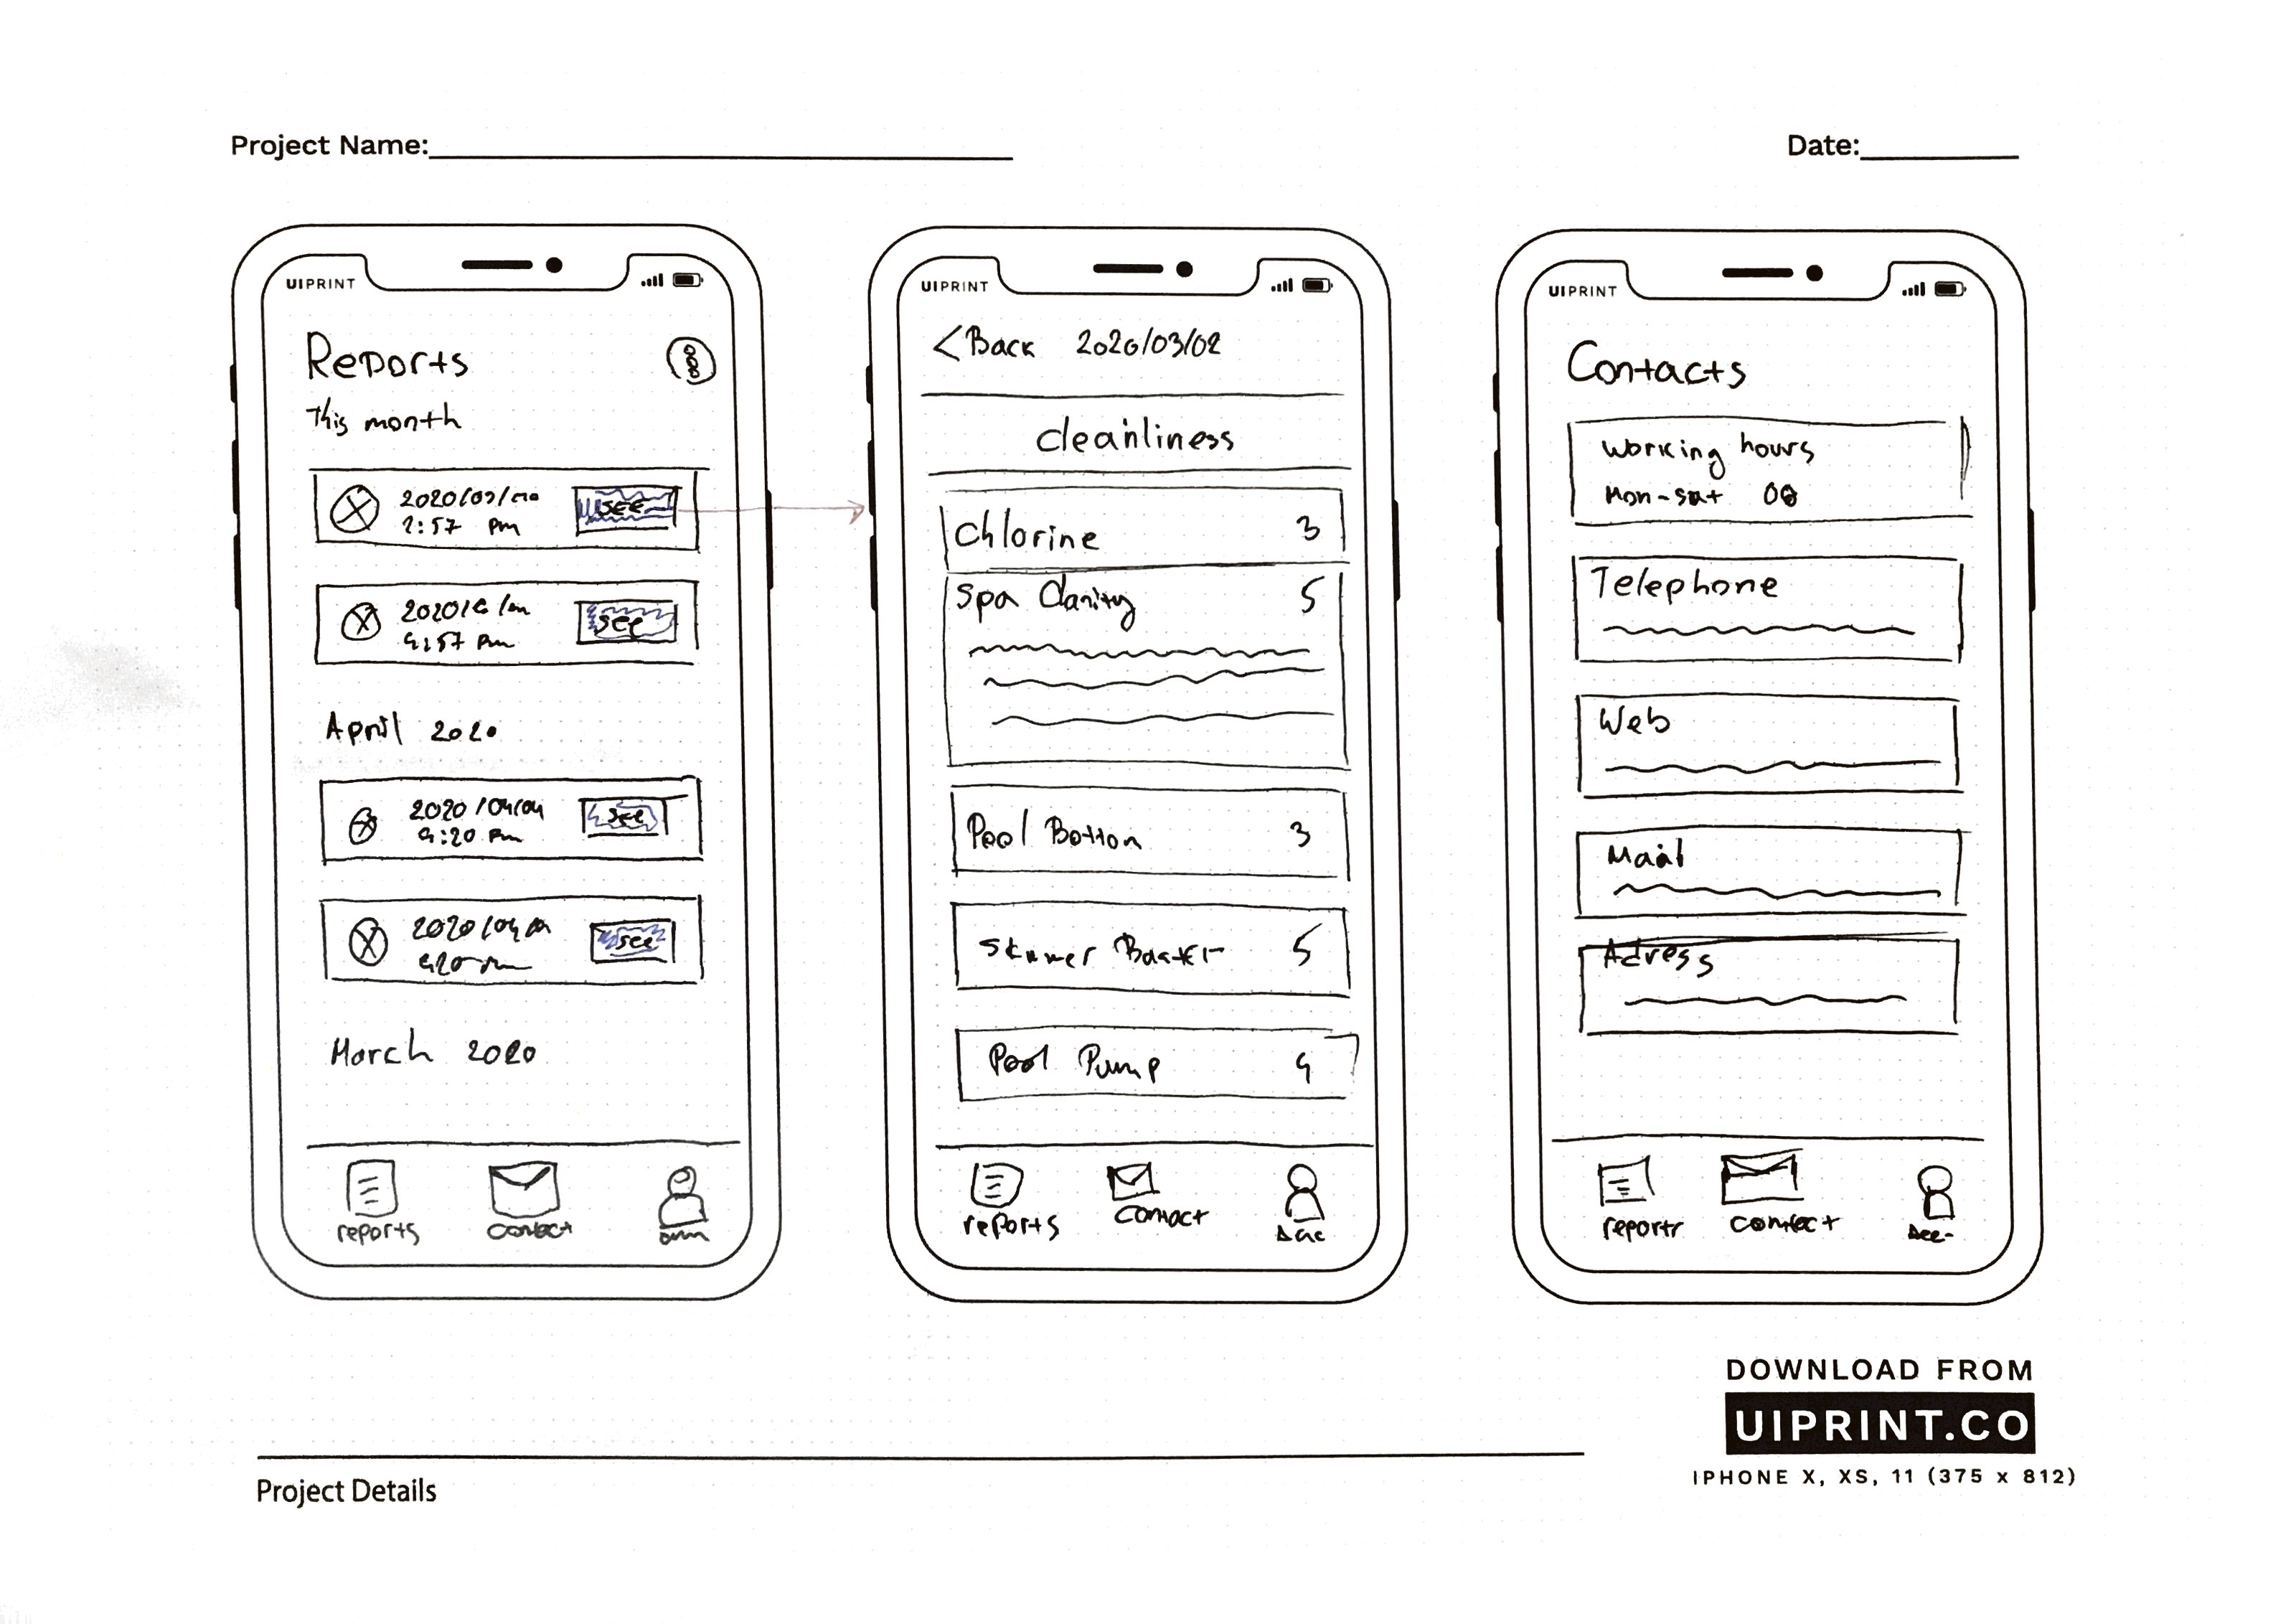 Project Name:
Date:
UIPRINT
Reports
This month
2:57 pm
see
4:57 pm
see
April 2020
2020/04/04
4:20 pm
see
see
March 2020
reports
contact
UIPRINT
<Back 2020/03/02
cleanliness
Chlorine 3
Spa Clarity 5
Pool Botton 3
5
Pool Pump 4
reports
contact
UIPRINT
Contacts
Working hours
Mon-sat
Telephone
Web
Mail
Adress
reports
contact
DOWNLOAD FROM
UIPRINT.CO
IPHONE X, XS, 11 (375 x 812)
Project Details